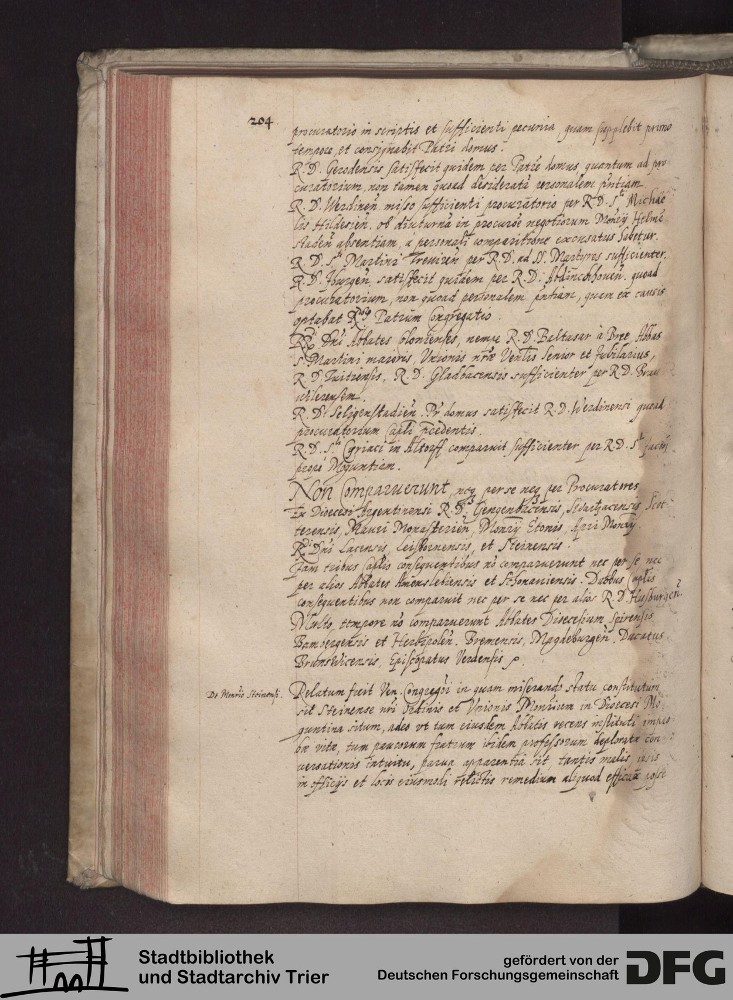 204
procuratorio in scriptis et sufficienti pecunia quam supplebit primo
tempore, et consignabit Patri domus.
R. D. Gerodensis satisfecit quidem per Patrē domus quantum ad pro-
curatorium, non tamen quoad desideratā personalem pn̄tiam.
R. D. Werdinen̄ misso sufficienti procuratorio per R. D. Sti Michae
lis Hildesien̄. ob diuturnā in procurōe negotiorum Monrȳ Helmē
stadien̄ absentiam, a personali comparitione excusatus habetur.
R. D. Sti Martini Treuiren̄ per R. D. ad SS. Martyres sufficienter.
R. D. Iburgen̄. satisfecit quidem per R. D. Abdinckhouen̄. quoad
procuratorium, non quoad personalem pn̄tiam, quam ex causis
optabat Patrum Congregatio.
RRdi Dn̄i Abbates Colonienses, nempe R. D. Baltasar à Bree, Abbas
S. Martini maioris, Unionis nr̄æ Senior et Jubilarius,
R. D. Tuitiensis, R. D. Gladbacensis sufficienter per R. D. Brau
wilerensem.
R. D. Seligenstadien̄. Pr̄ domus satisfecit R. D. Werdinensi quoad
procuratorium Capli pr̄cedentis.
R. D. Sti Cyriaci in Altorff comparuit sufficienter per R. D. Sti Jacobi
prope Moguntiam.
Non Comparuerunt, neq per se neq per Procuratores
Ex Diœcesi Argentinensi R. D. Gengenbacensis, Schutracensis
Mauri Monasterien̄, Monrȳ Etonis, Monrȳ
RRdi Dn̄i Lacensis, Leisbornensis, et Steinensis.
Jam tribus Caplis consequentibus nō comparuerunt nec per se nec
per alios Abbates Amenslebiensis et Schonauiensis. Duobus Caplis
consequentibus non comparuit nec per se nec per alios R. D. Huisburgen̄
Multo tempore nō comparuerunt Abbates Diœcesium Spirensis
Bambergensis et Herbipolen̄. Bremensis, Magdeburgen̄, Ducatus
Brunswicensis, Episcopatus Verdensis
De Monrio Steinensi.
Relatum fuit Ven. Congregōi in quam miserando statu constitutum
sit Steinense nr̄i Ordinis et Unionis Monrium in Diœcesi Mo
guntina situm, adeo vt tum eiusdem Abbatis recens instituti
vitæ, tum paucorum fratrum ibidem professorum deploratæ con
uersationis intuitu, parua apparentia sit tantis malis,
in officijs et locis eiusmodi relictis remedium aliquod efficax
Stadtbibliothek
und Stadtarchiv Trier
gefördert von der
Deutschen Forschungsgemeinschaft
DFG